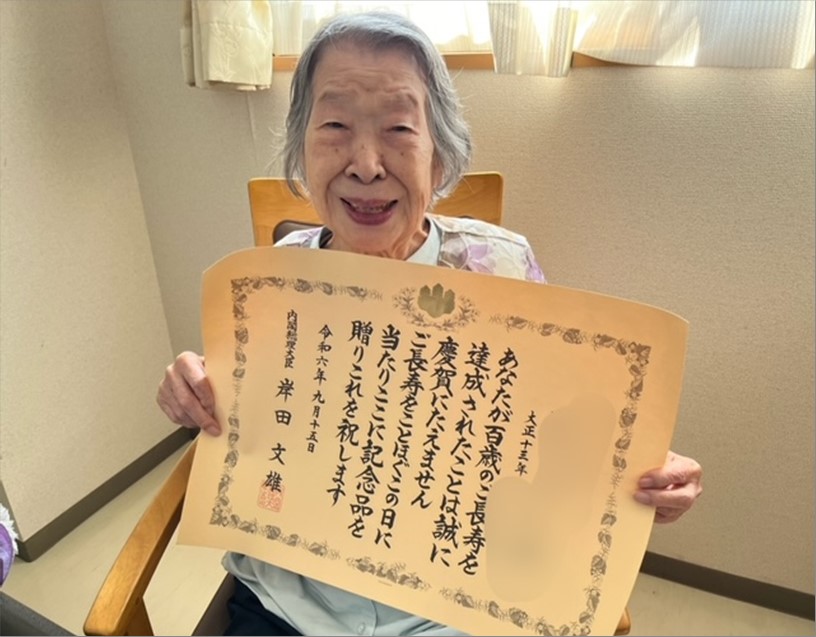 大正十三年
あなたが百歳のご長寿を
達成されたことは誠に
慶賀にたえません
ご長寿をことほぐこの日に
当たりここに記念品を
贈りこれを祝します
令和六年九月十五日
内閣総理大臣 岸田文雄